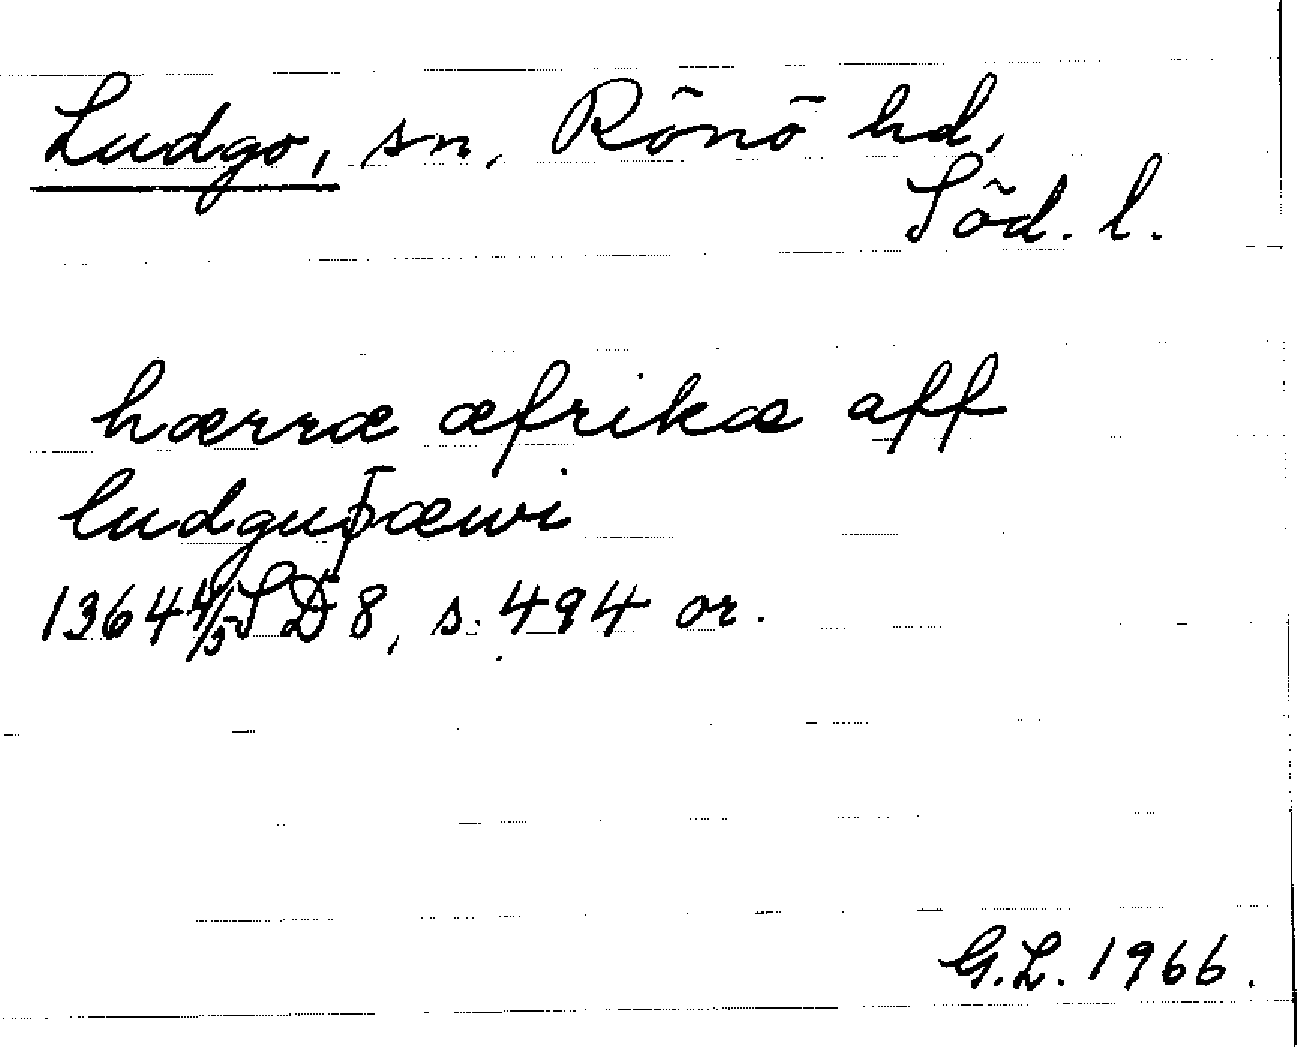 Ludgo, sn. Rönö hd,
Söd. l.
hærræ æfrikæ aff
ludguþæwi
1364 4/5 SD 8, s. 494 or.
G.L. 1966.